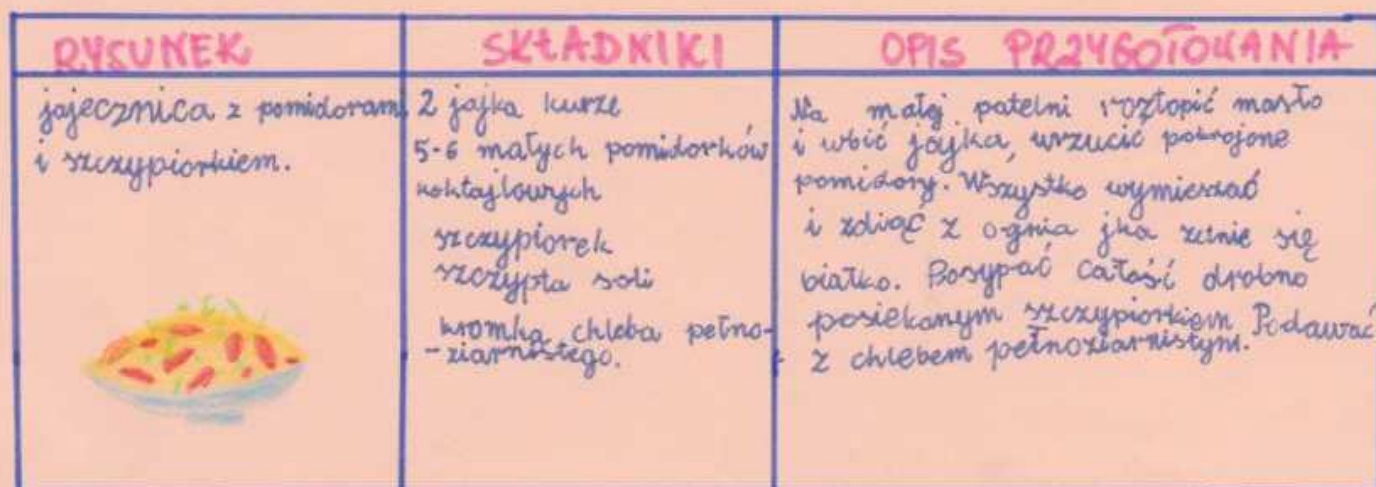 RYSUNEK
SKŁADNIKI
OPIS PRZYGOTOWANIA
jajecznica z pomidorami
i szczypiorkiem.
2 jajka kurze
5-6 małych pomidorków
koktajlowych
szczypiorek
szczypta soli
kromka chleba pełno-
-ziarnistego.
Na małej patelni roztopić masło
i wbić jajka, wrzucić pokrojone
pomidory. Wszystko wymieszać
i zdiąć z ognia jka zetnie się
białko. Posypać całość drobno
posiekanym szczypiorkiem Podawać
z chlebem pełnoziarnistym.